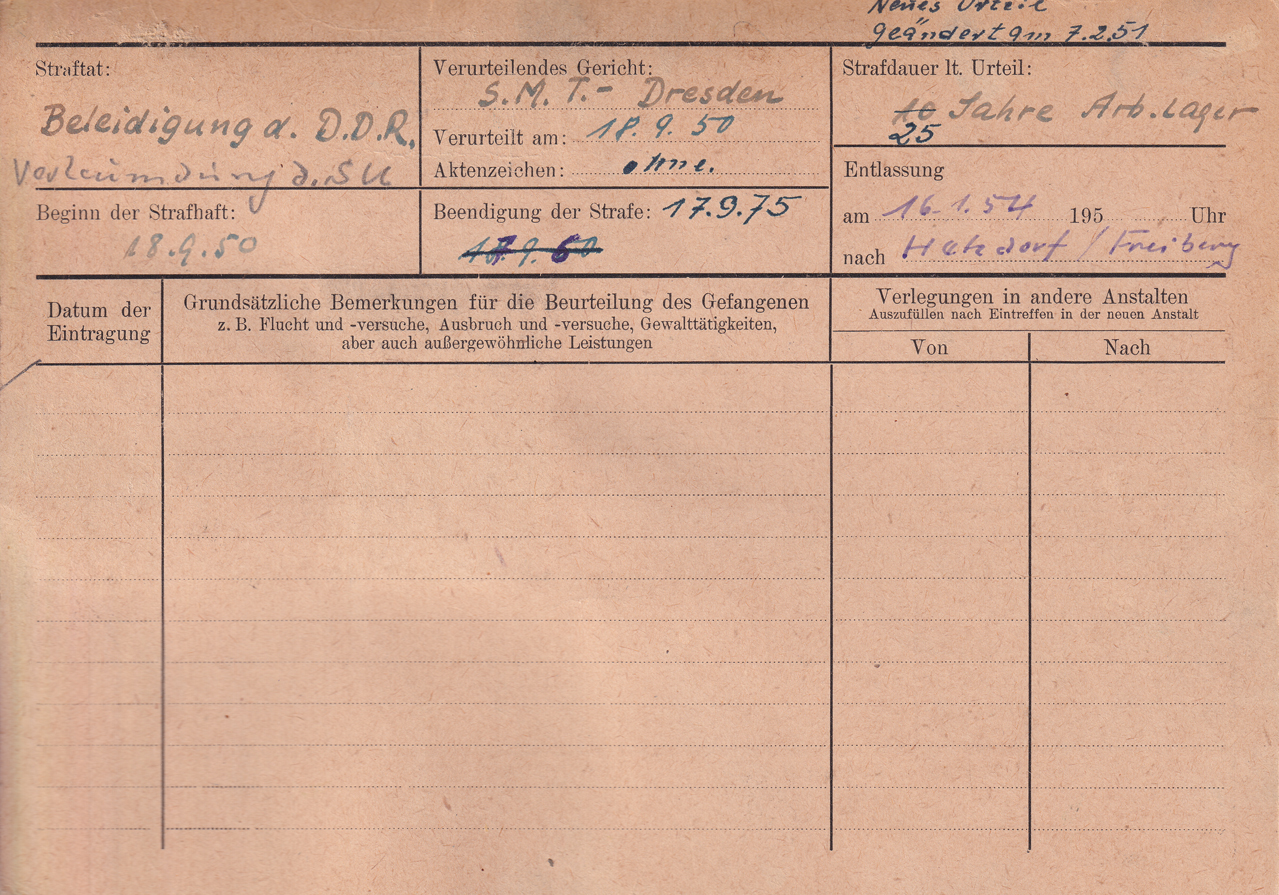 Neues Urteil
geändert am 7.2.51
Straftat:
Beleidigung d. D.D.R.
Verleumdung d. SU
Verurteilendes Gericht:
S.M.T.- Dresden
Verurteilt am: 18.9.50
Aktenzeichen: ohne.
Strafdauer lt. Urteil:
10 Jahre Arb.Lager
25
Beginn der Strafhaft:
18.9.50
Beendigung der Strafe: 17.9.75
17.9.60
Entlassung
am 16.1.54 195 Uhr
nach Hetzdorf / Freiberg
Datum der
Eintragung
Grundsätzliche Bemerkungen für die Beurteilung des Gefangenen
z. B. Flucht und -versuche, Ausbruch und -versuche, Gewalttätigkeiten,
aber auch außergewöhnliche Leistungen
Verlegungen in andere Anstalten
Auszufüllen nach Eintreffen in der neuen Anstalt
Von
Nach